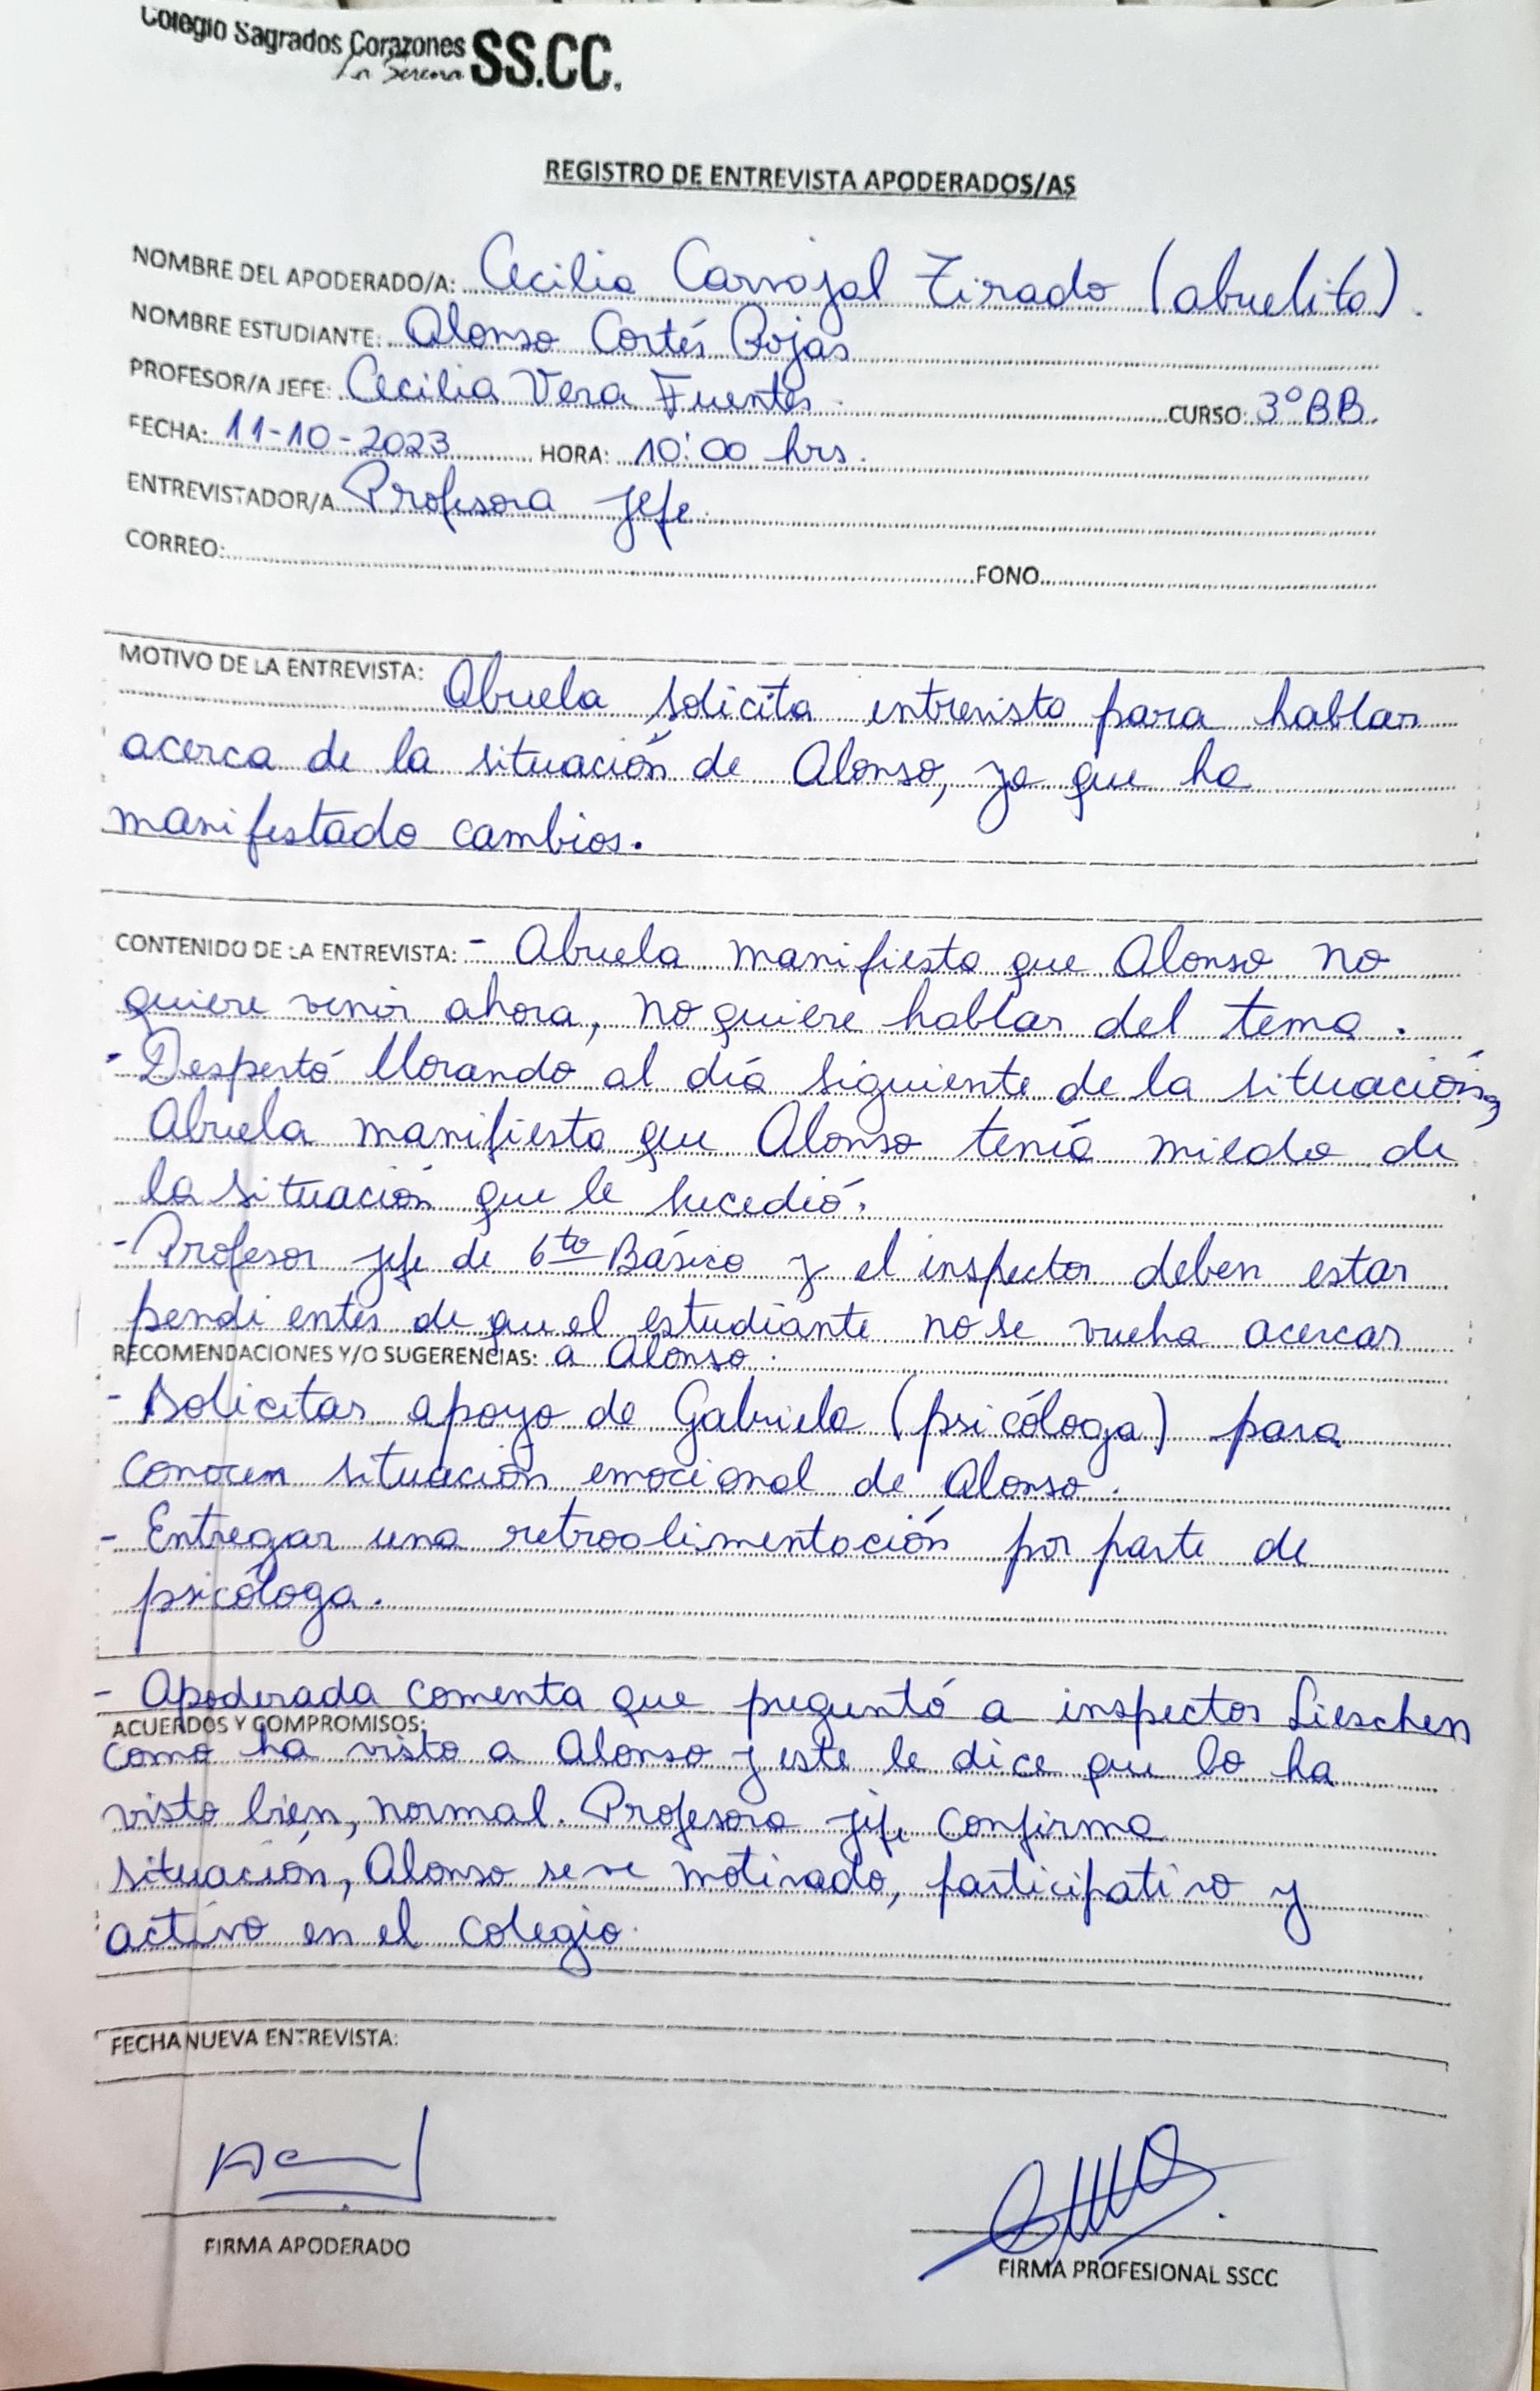 Colegio Sagrados Corazones SS.CC.
La Serena
REGISTRO DE ENTREVISTA APODERADOS/AS
NOMBRE DEL APODERADO/A: Cecilia Carvajal Tirado (abuelita).
NOMBRE ESTUDIANTE: Alonso Cortés Rojas
PROFESOR/A JEFE: Cecilia Vera Fuentes. CURSO: 3°B.B.
FECHA: 11-10-2023 HORA: 10:00 hrs.
ENTREVISTADOR/A Profesora jefe.
CORREO: FONO
MOTIVO DE LA ENTREVISTA: Abuela solicita entrevista para hablar
acerca de la situación de Alonso, ya que ha
manifestado cambios.
CONTENIDO DE LA ENTREVISTA: - Abuela manifiesta que Alonso no
quiere venir ahora, no quiere hablar del tema.
- Despertó llorando al día siguiente de la situación,
Abuela manifiesta que Alonso tenía miedo de
la situación que le sucedió.
- Profesor jefe de 6to Básico y el inspector deben estar
pendientes de que el estudiante no se vuelva acercar
RECOMENDACIONES Y/O SUGERENCIAS: a Alonso.
- Solicitar apoyo de Gabriela (psicóloga) para
conocer situación emocional de Alonso.
- Entregar una retroalimentación por parte de
psicóloga.
- Apoderada comenta que preguntó a inspector Lieschen
ACUERDOS Y COMPROMISOS:
como ha visto a Alonso y este le dice que lo ha
visto bien, normal. Profesora jefe confirma
situación, Alonso se ve motivado, participativo y
activo en el colegio.
FECHA NUEVA ENTREVISTA:
FIRMA APODERADO
FIRMA PROFESIONAL SSCC